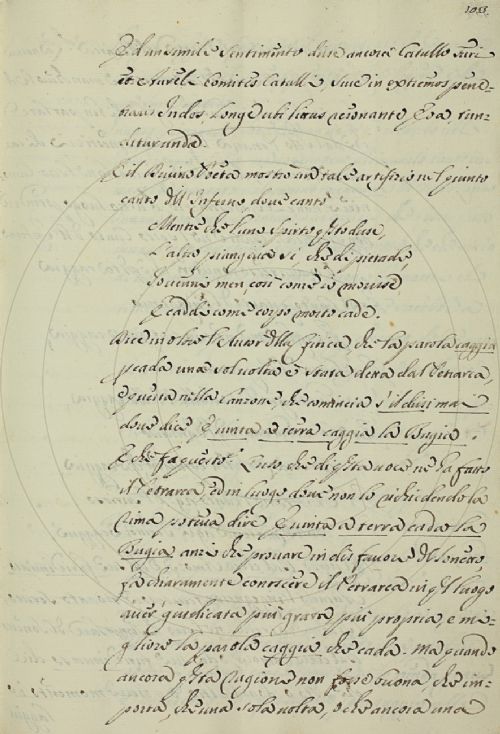 1011.
Ed un simile sentimento disse ancora Catullo Furi
et Aureli Comites Catulli, Sive in extremos pene-
travit Indos, Longe ubi litus resonante Eoa, tun-
ditur unda.
E il Divino Poeta mostrò un tale artifizio nel quinto
canto dell Inferno dove cantò
Mentre che l'uno Spirto questo disse,
L'altro piangeva sì che di pietade,
Io venni men così come io morisse,
E caddi come corpo morto cade.
Dice inoltre l'Autor della critica, che la parola caggia
per cada una sol volta è stata detta dal Petrarca,
e questa nella Canzone, che comincia s'il dissi mai
dove dice E vinta a terra caggia la Bugia.
E che fa questo? Luso che di questa voce ne ha fatto
il Petrarca, ed in luogo dove non lo richiedendo la
Rima poteva dire E vinta a terra cada la
Bugia anzi che provare in disfavore del Sonetto,
fa chiaramente conoscere il Petrarca in quel luogo
aver giudicata più grave, più propria, e mi-
gliore la parola caggia che cada. Ma quando
ancora questa Ragione non fosse buona, che im-
porta, che una sola volta, o che ancora una